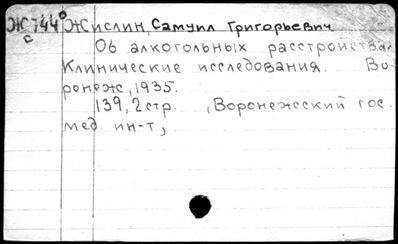 Ж744 Жислин, Самуил Григорьевич
с
Об алкогольных расстройствах.
Клинические исследования. Во-
ронеж, 1935.
139, 2 стр. (Воронежский гос.
мед. ин-т)